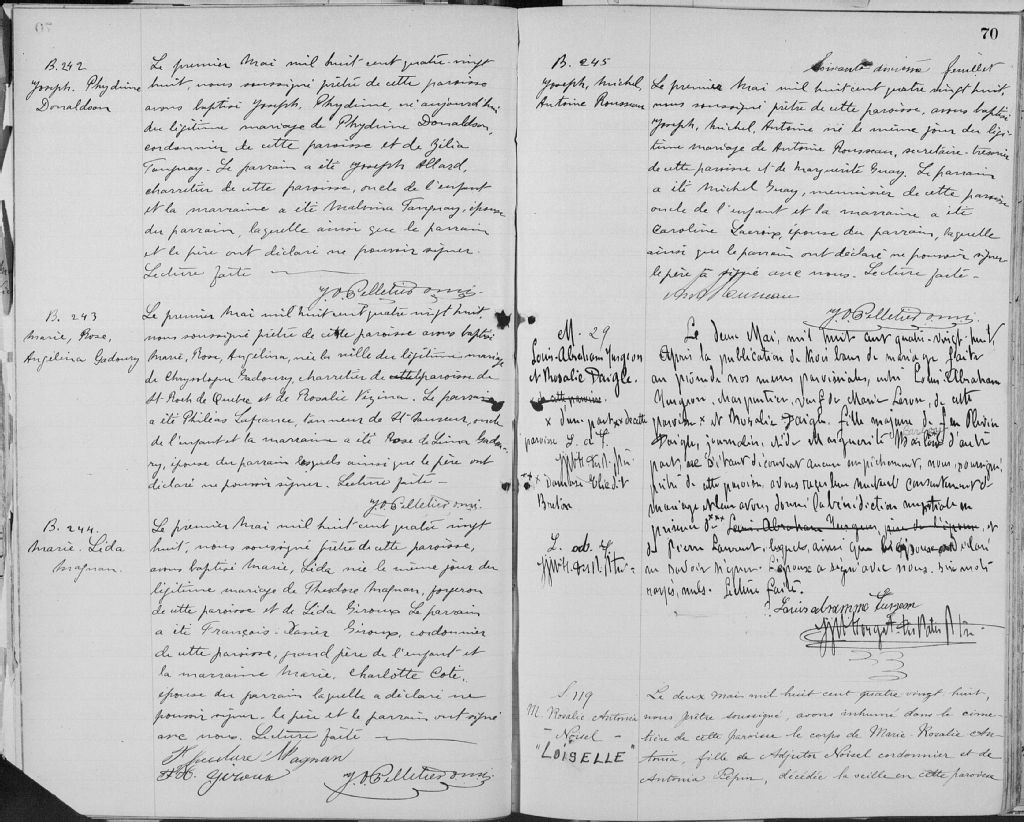 B. 242
Joseph. Phydime
Donaldson
Le premier Mai mil huit cent quatre vingt
huit, nous soussigné prêtre de cette paroisse
avons baptisé Joseph, Phydime, né aujourd'hui
du légitime mariage de Phydime Donaldson,
cordonnier de cette paroisse et de Zélia
Tanguay. Le parrain a été Joseph Allard,
charretier de cette paroisse, oncle de l'enfant
et la marraine a été Malvina Tanguay, épouse
du parrain, laquelle ainsi que le parrain
et le père ont déclaré ne pouvoir signer.
Lecture faite
J. O. Pelletier omi.
B. 243
Marie, Rose,
Angelina Gadoury
Le premier Mai mil huit cent quatre vingt huit
nous soussigné prêtre de cette paroisse avons baptisé
Marie, Rose, Angelina, née la veille du légitime mariage
de Chrysologue Gadoury, charretier de cette paroisse de
St Roch de Québec et de Rosalie Vézina. Le parrain
a été Philéas Lafrance, tanneur de St Sauveur, oncle
de l'enfant et la marraine a été Rose de Lima Gadou-
ry, épouse du parrain lesquels ainsi que le père ont
déclaré ne pouvoir signer. Lecture faite -
J. O. Pelletier omi.
B. 244.
Marie. Lida
Magnan.
Le premier Mai mil huit cent quatre vingt
huit, nous soussigné prêtre de cette paroisse,
avons baptisé Marie, Lida née le même jour du
légitime mariage de Théodore Magnan, forgeron
de cette paroisse et de Lida Giroux Le parrain
a été François-Xavier Giroux, cordonnier
de cette paroisse, grand père de l'enfant et
la marraine Marie, Charlotte Coté,
épouse du parrain laquelle a déclaré ne
pouvoir signer. le père et le parrain ont signé
avec nous. Lecture faite -
Théodore Magnan
F. X. Giroux
J. O. Pelletier omi
70
Soixante dixième feuillet
B. 245
Joseph, Michel,
Antoine Rousseau
Le premier Mai mil huit cent quatre vingt huit,
nous soussigné prêtre de cette paroisse, avons baptisé
Joseph, Michel, Antoine né le même jour du légi-
time mariage de Antoine Rousseau, secrétaire-trésorier
de cette paroisse et de Marguerite Guay. Le parrain
a été Michel Guay, menuisier de cette paroisse
oncle de l'enfant et la marraine a été
Caroline Lacroix, épouse du parrain, laquelle
ainsi que le parrain ont déclaré ne pouvoir signer
le père a signé avec nous. Lecture faite -
Rousseau
J. O. Pelletier omi.
M. 29
Louis-Abraham Turgeon
et Rosalie Daigle.
de cette paroisse
x d'une part xx de cette
paroisse
xxx Damase
Breton
Le deux Mai, mil huit cent quatre-vingt-huit,
Après la publication de trois bans de mariage faite
au prône de nos messes paroissiales, entre Louis Abraham
Turgeon, charpentier, veuf de Marie de cette
paroisse x et Rosalie Daigle, fille majeure de feu Olivier
Daigle, journalier, et de Marguerite d'autre
part, ne s'étant découvert aucun empêchement, nous, soussigné
prêtre de cette paroisse, avons reçu leur mutuel consentement de
mariage et leur avons donné la bénédiction nuptiale en
présence de xxx Louis Abraham Turgeon, père de l'époux, et
de Pierre Laurent, lesquels, ainsi que l'épouse ont déclaré
ne savoir signer. L'époux a signé avec nous. mots
rayés, nuls. Lecture faite.
Louis abramme Turgeon
S 119
M. Rosalie Antonia
- Noisel -
"LOISELLE"
Le deux Mai mil huit cent quatre vingt huit,
nous prêtre soussigné, avons inhumé dans le cime-
tière de cette paroisse le corps de Marie-Rosalie An-
tonia, fille de Adjutor Noisel cordonnier et de
Antonia Pépin, décédée la veille en cette paroisse